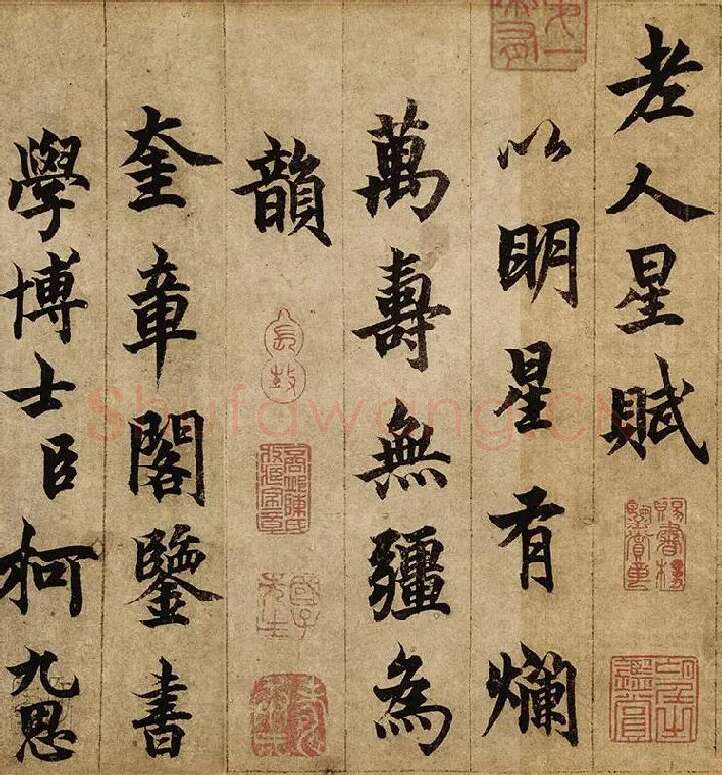 老人星賦
以明星有爛
萬壽無疆為
韻
奎章閣鑒書
學博士臣柯九思
shufawang.cn